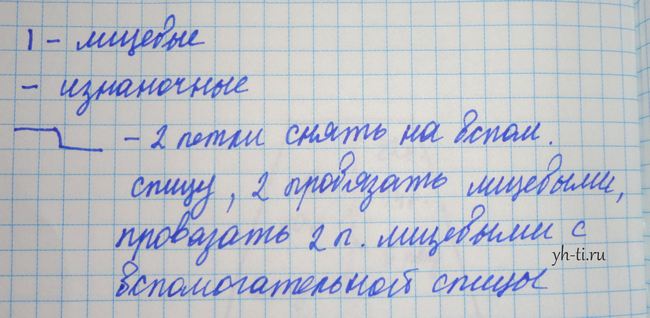 I - лицевые
- изнаночные
- 2 петли снять на вспом.
спицу, 2 провязать лицевыми,
провазать 2 п. лицевыми с
вспомогательной спицы
yh-ti.ru